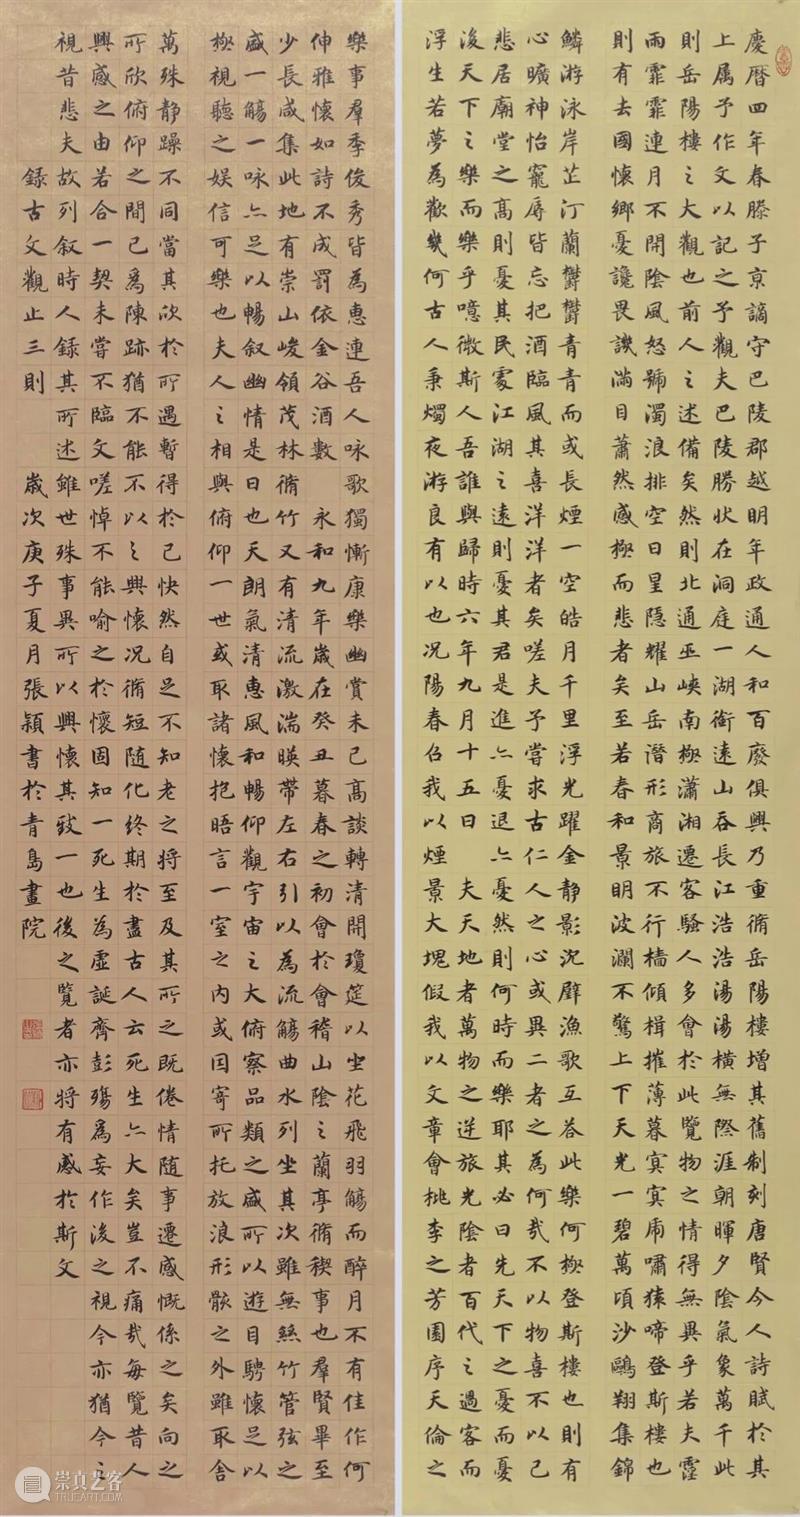 慶曆四年春滕子京謫守巴陵郡越明年政通人和百廢俱興乃重脩岳陽樓增其舊制刻唐賢今人詩賦於其
上属予作文以記之予觀夫巴陵勝狀在洞庭一湖銜遠山吞長江浩浩湯湯橫無際涯朝暉夕陰氣象萬千此
則岳陽樓之大觀也前人之述備矣然則北通巫峽南極瀟湘遷客騷人多會於此覽物之情得無異乎若夫霪
雨霏霏連月不開陰風怒號濁浪排空日星隱耀山岳潛形商旅不行檣傾楫摧薄暮冥冥虎嘯猿啼登斯樓也
則有去國懷鄉憂讒畏譏滿目蕭然感極而悲者矣至若春和景明波瀾不驚上下天光一碧萬頃沙鷗翔集錦
鱗游泳岸芷汀蘭鬱鬱青青而或長煙一空皓月千里浮光躍金静影沉璧漁歌互答此樂何極登斯樓也則有
心曠神怡寵辱皆忘把酒臨風其喜洋洋者矣嗟夫予嘗求古仁人之心或異二者之為何哉不以物喜不以己
悲居廟堂之高則憂其民處江湖之遠則憂其君是進亦憂退亦憂然則何時而樂耶其必曰先天下之憂而憂
後天下之樂而樂乎噫微斯人吾誰與歸時六年九月十五日 夫天地者萬物之逆旅光陰者百代之過客而
浮生若夢為歡幾何古人秉燭夜游良有以也况陽春召我以煙景大塊假我以文章會桃李之芳園序天倫之
樂事羣季俊秀皆為惠連吾人咏歌獨慚康樂幽賞未已高談轉清開瓊筵以坐花飛羽觴而醉月不有佳作何
伸雅懷如詩不成罰依金谷酒數 永和九年歲在癸丑暮春之初會於會稽山陰之蘭亭脩稧事也羣賢畢至
少長咸集此地有崇山峻領茂林脩竹又有清流激湍暎帶左右引以為流觴曲水列坐其次雖無絲竹管弦之
盛一觴一咏亦足以暢叙幽情是日也天朗氣清惠風和暢仰觀宇宙之大俯察品類之盛所以遊目騁懷足以
極視聽之娱信可樂也夫人之相與俯仰一世或取諸懷抱晤言一室之内或因寄所托放浪形骸之外雖取舍
萬殊静躁不同當其欣於所遇暫得於己快然自足不知老之將至及其所之既倦情随事遷感慨係之矣向之
所欣俯仰之間已為陳跡猶不能不以之興懷况脩短随化終期於盡古人云死生亦大矣豈不痛哉每覽昔人
興感之由若合一契未嘗不臨文嗟悼不能喻之於懷固知一死生為虚誕齊彭殤為妄作後之視今亦猶今之
視昔悲夫故列叙時人録其所述雖世殊事異所以興懷其致一也後之覽者亦将有感於斯文
録古文觀止三則 歲次庚子夏月張穎書於青島畫院
崇真艺客
TRUEART.COM